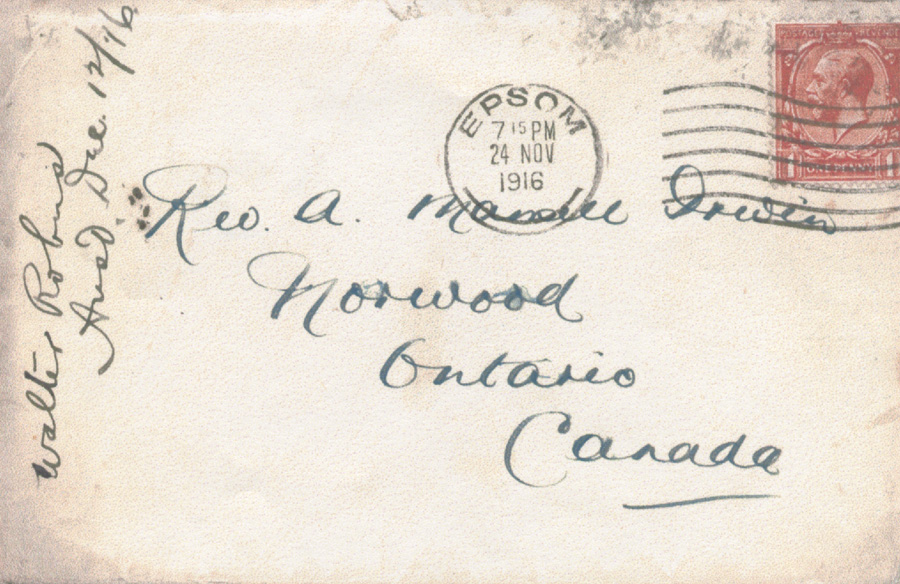 POSTAGE REVENUE
ONE PENNY
EPSOM
7 15 PM
24 NOV
1916
Rev. A. Irwin
Norwood
Ontario
Canada
Walter Robins
Ansd. Dec. 12/16